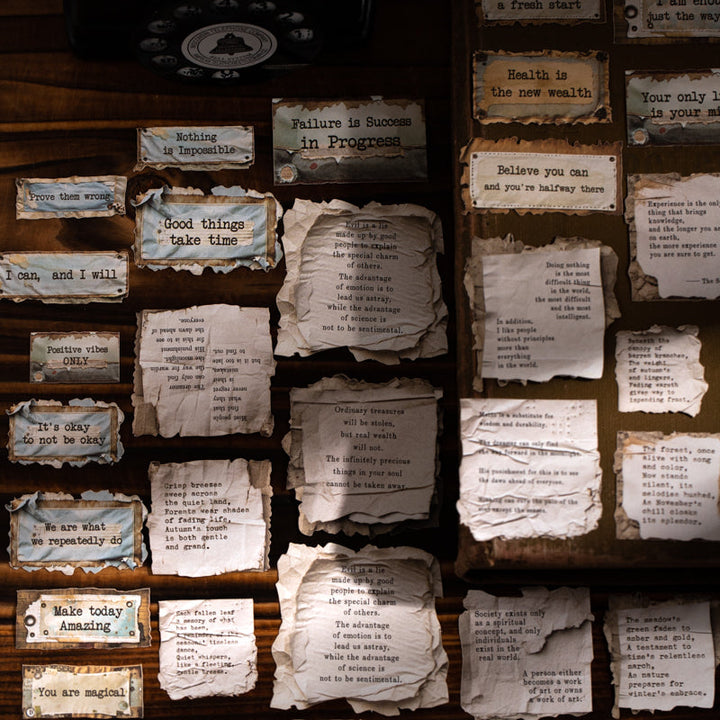 a fresh start
just the way
Health is
the new wealth
Your only
is your
Failure is Success
in Progress
Nothing
is Impossible
Prove them wrong
Good things
take time
I can, and I will
Positive vibes
ONLY
It's okay
to not be okay
We are what
we repeatedly do
Make today
Amazing
You are magical
Believe you can
and you're halfway there
Evil is a lie
made up by good
people to explain
the special charm
of others.
The advantage
of emotion is to
lead us astray,
while the advantage
of science is
not to be sentimental.
Experience is the only
thing that brings
knowledge,
and the longer you
on earth,
the more experience
you are sure to get.
Doing nothing
is the most
difficult thing
in the world,
the most difficult
and the most
intelligent.
In addition,
I like people
without principles
more than
everything
in the world.
Most people
find that
what they
regret is
their mistakes
too late
to find out.
The dreamer
can only find
the way forward
in the moonlight.
His punishment
for this is to see
the dawn ahead of
everyone.
Ordinary treasures
will be stolen,
but real wealth
will not.
The infinitely precious
things in your soul
cannot be taken away.
Beneath the
canopy of
barren branches,
The weight
of autumn's
end lingers,
Fading warmth
gives way to
impending frost.
is a substitute for
wisdom and durability.
The dreamer can only find
the way forward in the moonlight.
His punishment for this is to see
the dawn ahead of everyone.
Nothing can cure the pain of the
except the senses.
The forest, once
alive with song
and color,
Now stands
silent, its
melodies hushed,
As November's
chill cloaks
its splendor.
Crisp breezes
sweep across
the quiet land,
Forests wear shades
of fading life,
Autumn's touch
is both gentle
and grand.
Each fallen leaf
a memory of what
has been,
A reminder of the
timeless
dance,
Quiet whispers,
like a fleeting,
gentle breeze.
Evil is a lie
made up by good
people to explain
the special charm
of others.
The advantage
of emotion is to
lead us astray,
while the advantage
of science is
not to be sentimental.
Society exists only
as a spiritual
concept, and only
individuals
exist in the
real world.
A person either
becomes a work
of art or owns
a work of art.
The meadow's
green fades to
amber and gold,
A testament to
time's relentless
march,
As nature
prepares for
winter's embrace.